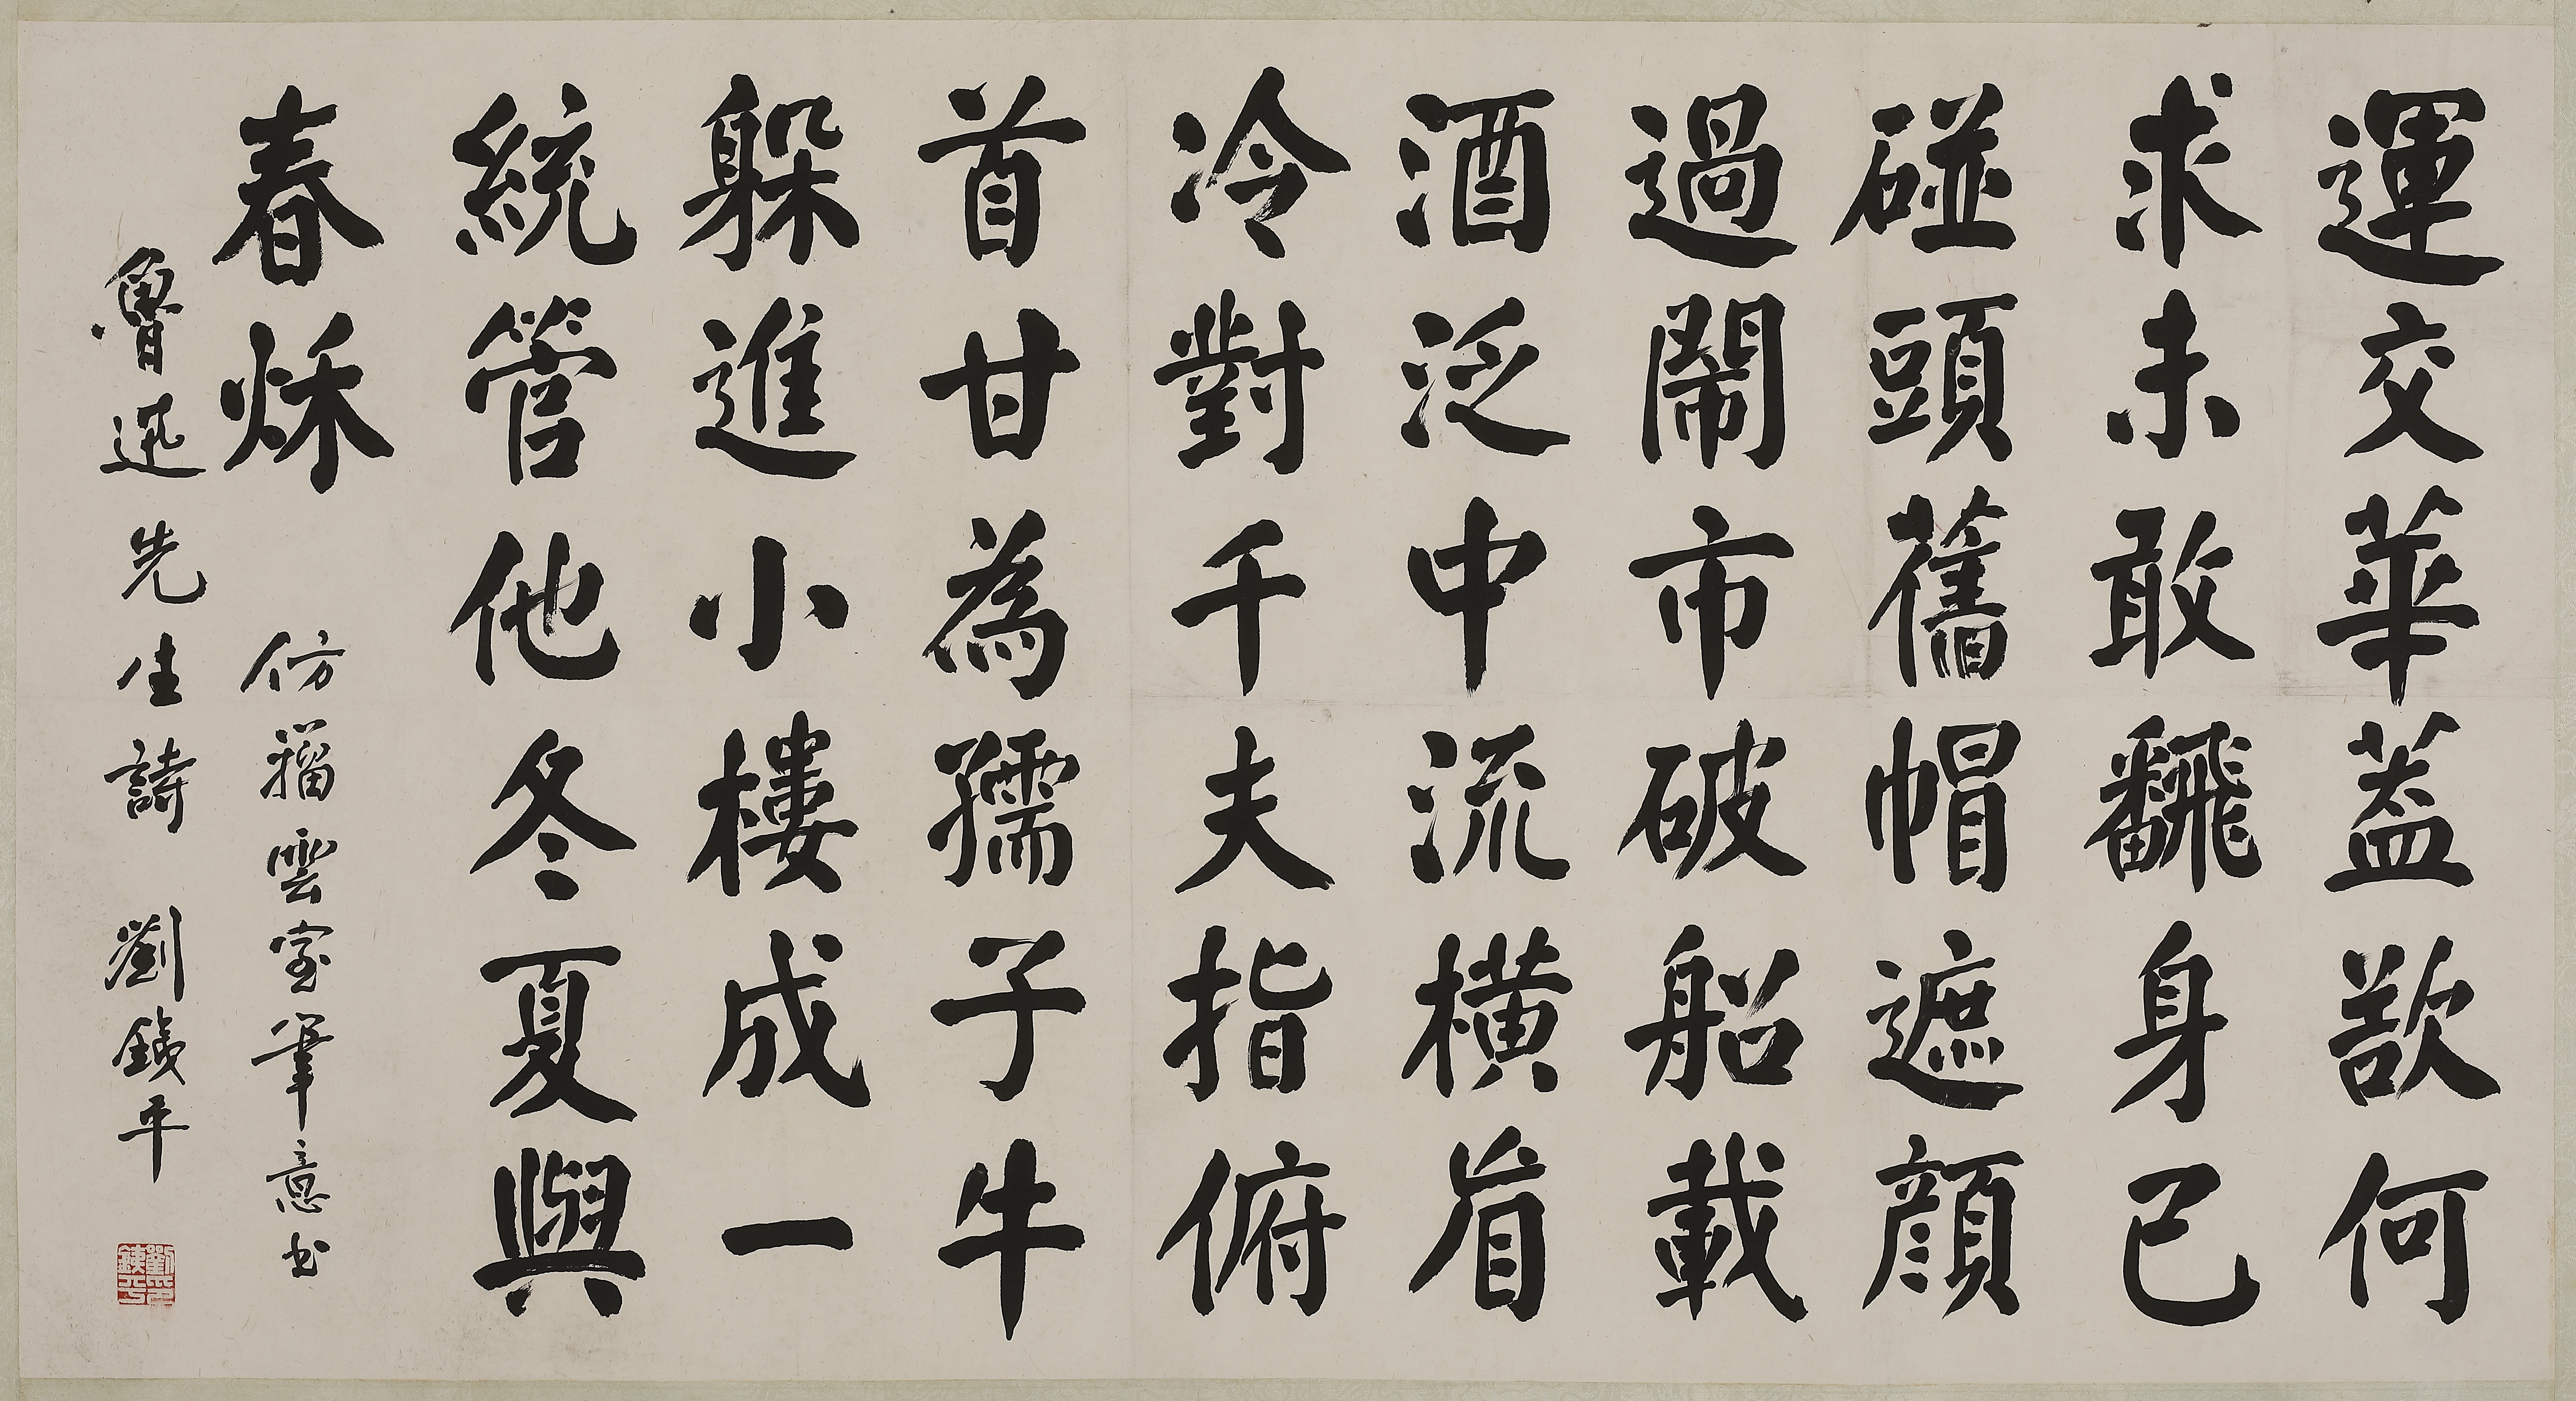 運交華蓋欲何
求未敢飜身已
碰頭舊帽遮顏
過鬧市破船載
酒泛中流橫眉
冷對千夫指俯
首甘為孺子牛
躲進小樓成一
統管他冬夏與
春秌
仿雲室筆意书
魯迅先生詩 劉鐵平